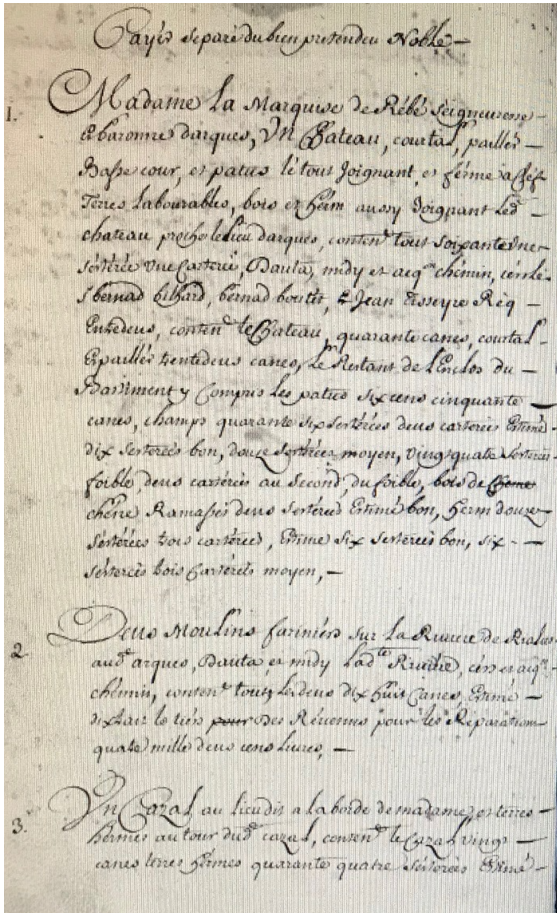 Cayer separé du bien pretendeu Noble –
1. Madame La Marquise de Rébé Seigneuresse
Et baronne darques, Un Chateau, courtal, paillés –
Basse cour, et patus le tout Joignant, et ferme a clef
Terres Labourables, bois et herm aussy Joignant Led.
chateau proche le lieu darques, conten.t tout soixante une –
sesterée une Carteree, Dauta, midy et acq.on chemin, cers le
S.r bernad bilhard, bernad boutet, & Jean Tisseyre Req
Entedeus, conten.t le Chateau, quarante canes, courtal –
Et paillés trentedeus canes, Le Restant de L'Enclos du –
Bastiment y Compris les patus six cens cinquante –
canes, champs quarante six sesterées deus carterees Estimé –
dix sesterees bon, douse sesterées moyen, vingt quatre sesterées
foible, deus cartérés au second, du foible, bois de
chéne Ramassés deus sesterées Estimé bon, herm douse –
sestérées trois carterées, Estime six sesterées bon, six –
sesterees trois Carterées moyen, –
2. Deus Moulins fariniers sur La Riviere de Rialses
aud. arques, Dauta et midy Lad.te Riviere, cers et acq.on
chémin, conten.t touts Lesdeus dix huit Canes, Estimé –
distrait le tiers des Revenus pour les Réparations
quatre mille deus cens Livres, –
3. Un Cazal au lieu dit a la borde de madame, et terres
hermes autour dud. cazal, conten.t le Cazal vingt –
canes terres hermes quarante quatre sesterées Estimé –